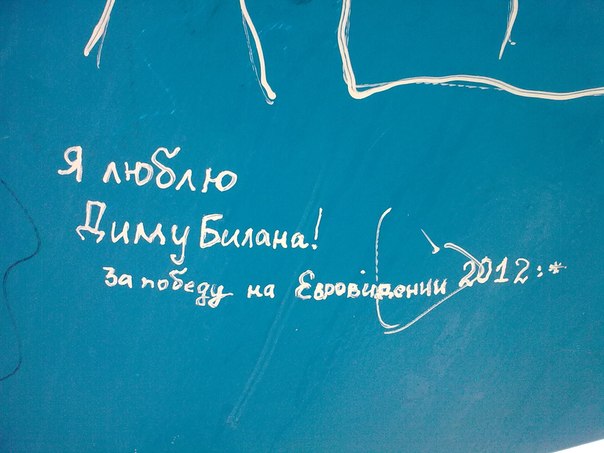 Я люблю
Диму Билана!
За победу на Евровидении 2012:*